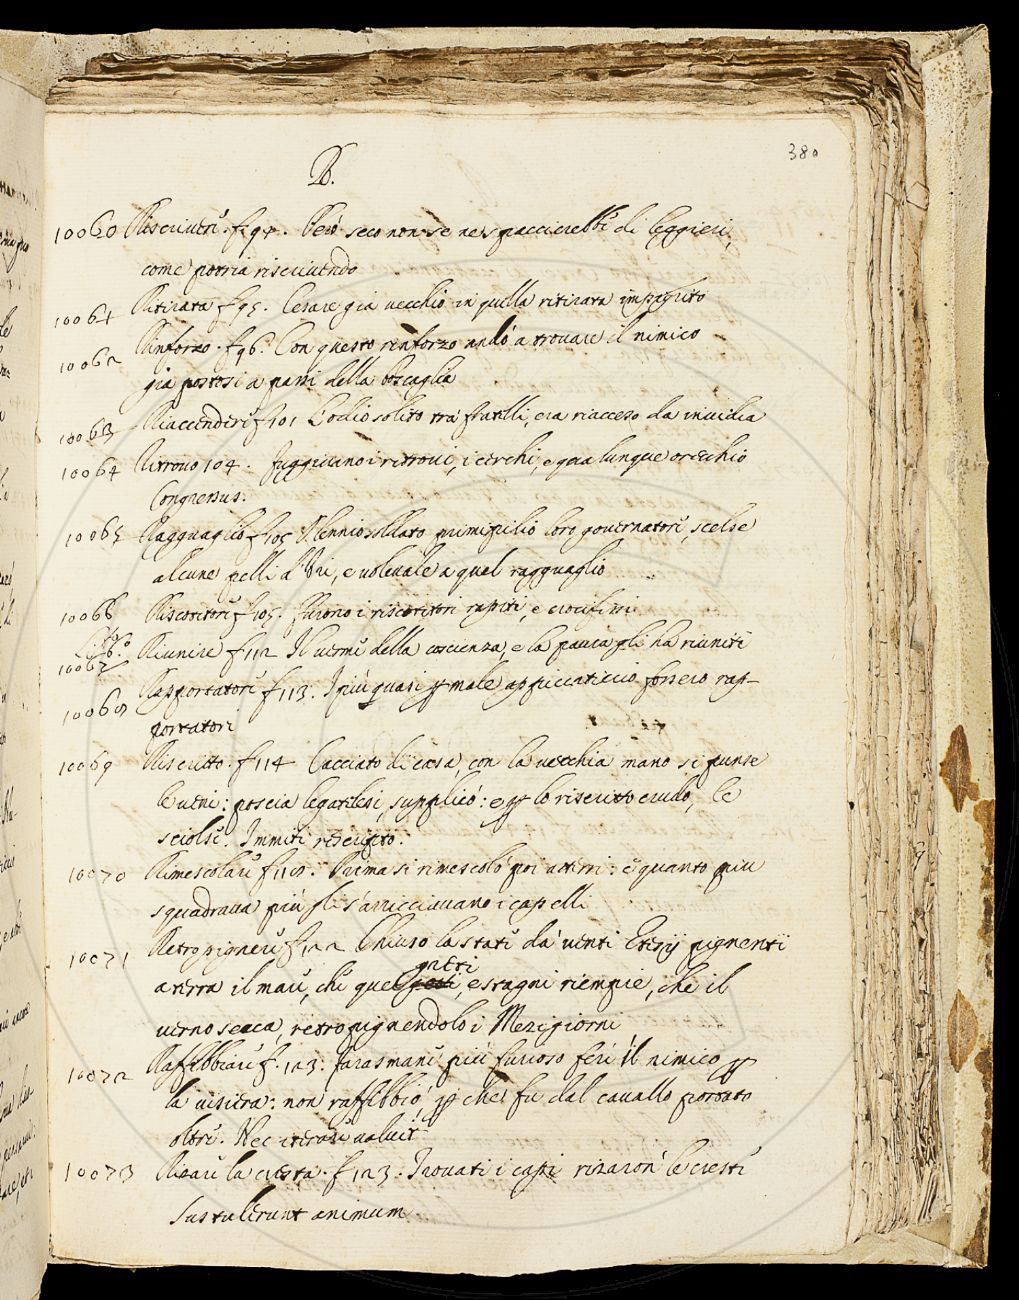 380
R.
10060 Riscrivere f. 94. Però seco non se ne spaccierebbe di leggieri,
come potria riscrivendo
10061 Ritirata f. 95. Cesare già vecchio in quella ritirata impigrito
10062 Rinforzo. f. 96. Con questo rinforzo andò a trovare il nimico
già postosi a passi della boscaglia
10063 Riaccendere f. 101 L'odio solito trà fratelli, era riacceso da invidia
10064 Ritrovo 104. fuggivano i ritrovi, i cerchi, e qualunque orecchio
Congressus.
10065 Ragguaglio f. 105 Olennio soldato primipilio loro governatore, scelse
alcune pelli d'Uri, e volevale a quel ragguaglio
10066 Riscotitore f. 105. Furono i riscotitori rapiti, e crocifissi
Lib. 6.º
10067 Riunire f. 112 Il verme della coscienza, e la paura gli ha riuniti
10068 Rapportatore f. 113. I più quasi p male appiccaticcio fossero rap-
portatori
10069 Riscritto. f. 114 Cacciato di casa, con la vecchia mano si punse
le veni: poscia legatelesi, supplicò: e p lo riscritto crudo, le
sciolse. Immiti rescripto.
10070 Rimescolare f. 118. Prima si rimescolò poi atterri: e quanto più
squadrava più gli s'arricciavano i capelli
10071 Retropignere f. 122 Chiuso la state da' venti Etesij pignenti
a terra il mare, che quei greti, e stagni riempie, che il
verno secca, retropignendolo i Mezigiorni
10072 Raffibbiare f. 123. farasmane più furioso ferì il nimico p
la visiera: non raffibbiò p che fu dal cavallo portato
oltre. Nec iterare valuit
10073 Rizare la cresta. f. 123. Trovati i capi rizaron le creste
Sustulerunt animum